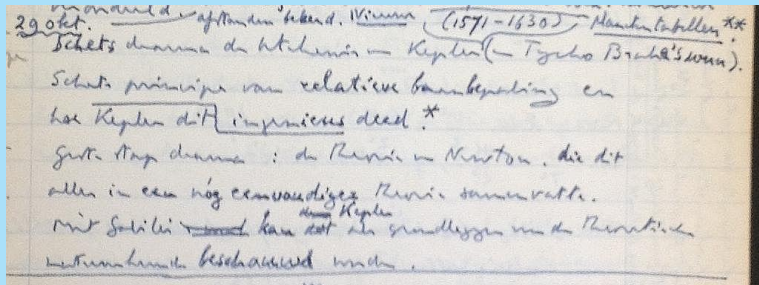 afstanden bekend. Nieuwe (1571-1630) Maantabellen**
29 okt.
Schets daarna de betekenis van Kepler (en Tycho Brahe's werk).
Schets principe van relatieve baanbepaling en
hoe Kepler dit ingenieus deed.*
Grote stap daarna: de theorie van Newton, die dit
alles in een nóg eenvoudiger theorie samenvatte.
Met Galilei kan Kepler als grondlegger van de theoretische
natuurkunde beschouwd worden.